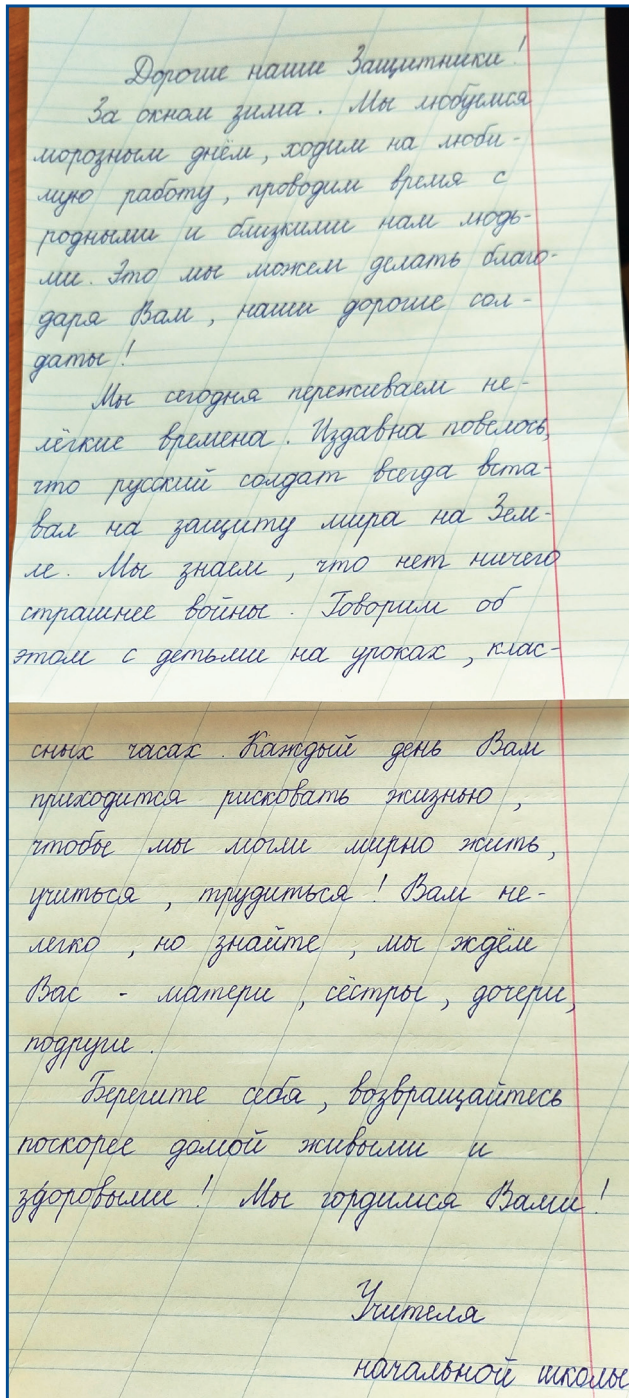 Дорогие наши Защитники!
За окном зима. Мы любуемся
морозным днём, ходим на люби-
мую работу, проводим время с
родными и близкими нам людь-
ми. Это мы можем делать благо-
даря Вам, наши дорогие сол-
даты!
Мы сегодня переживаем не-
лёгкие времена. Издавна повелось,
что русский солдат всегда вста-
вал на защиту мира на Зем-
ле. Мы знаем, что нет ничего
страшнее войны. Говорим об
этом с детьми на уроках, клас-
сных часах. Каждый день Вам
приходится рисковать жизнью,
чтобы мы могли мирно жить,
учиться, трудиться! Вам не-
легко, но знайте, мы ждём
Вас - матери, сёстры, дочери,
подруги.
Берегите себя, возвращайтесь
поскорее домой живыми и
здоровыми! Мы гордимся Вами!
Учителя
начальной школы